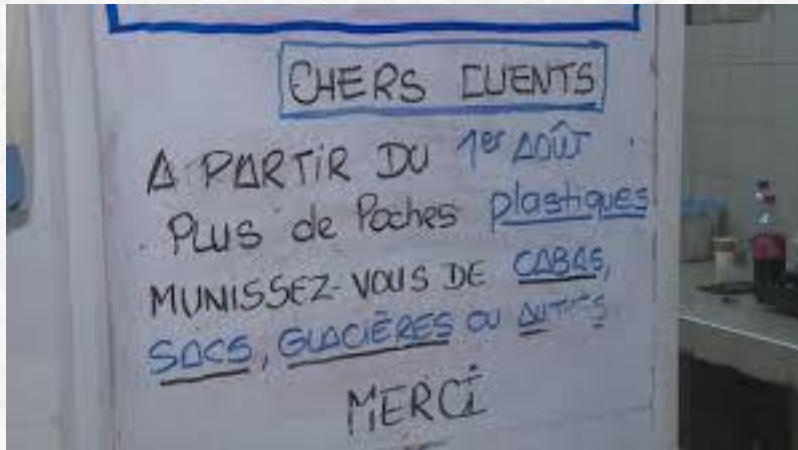 CHERS CLIENTS
A PARTIR DU 1er AOÛT
PLUS de Poches plastiques
MUNISSEZ-VOUS DE CABAS,
SACS, GLACIÈRES OU AUTRES
MERCI